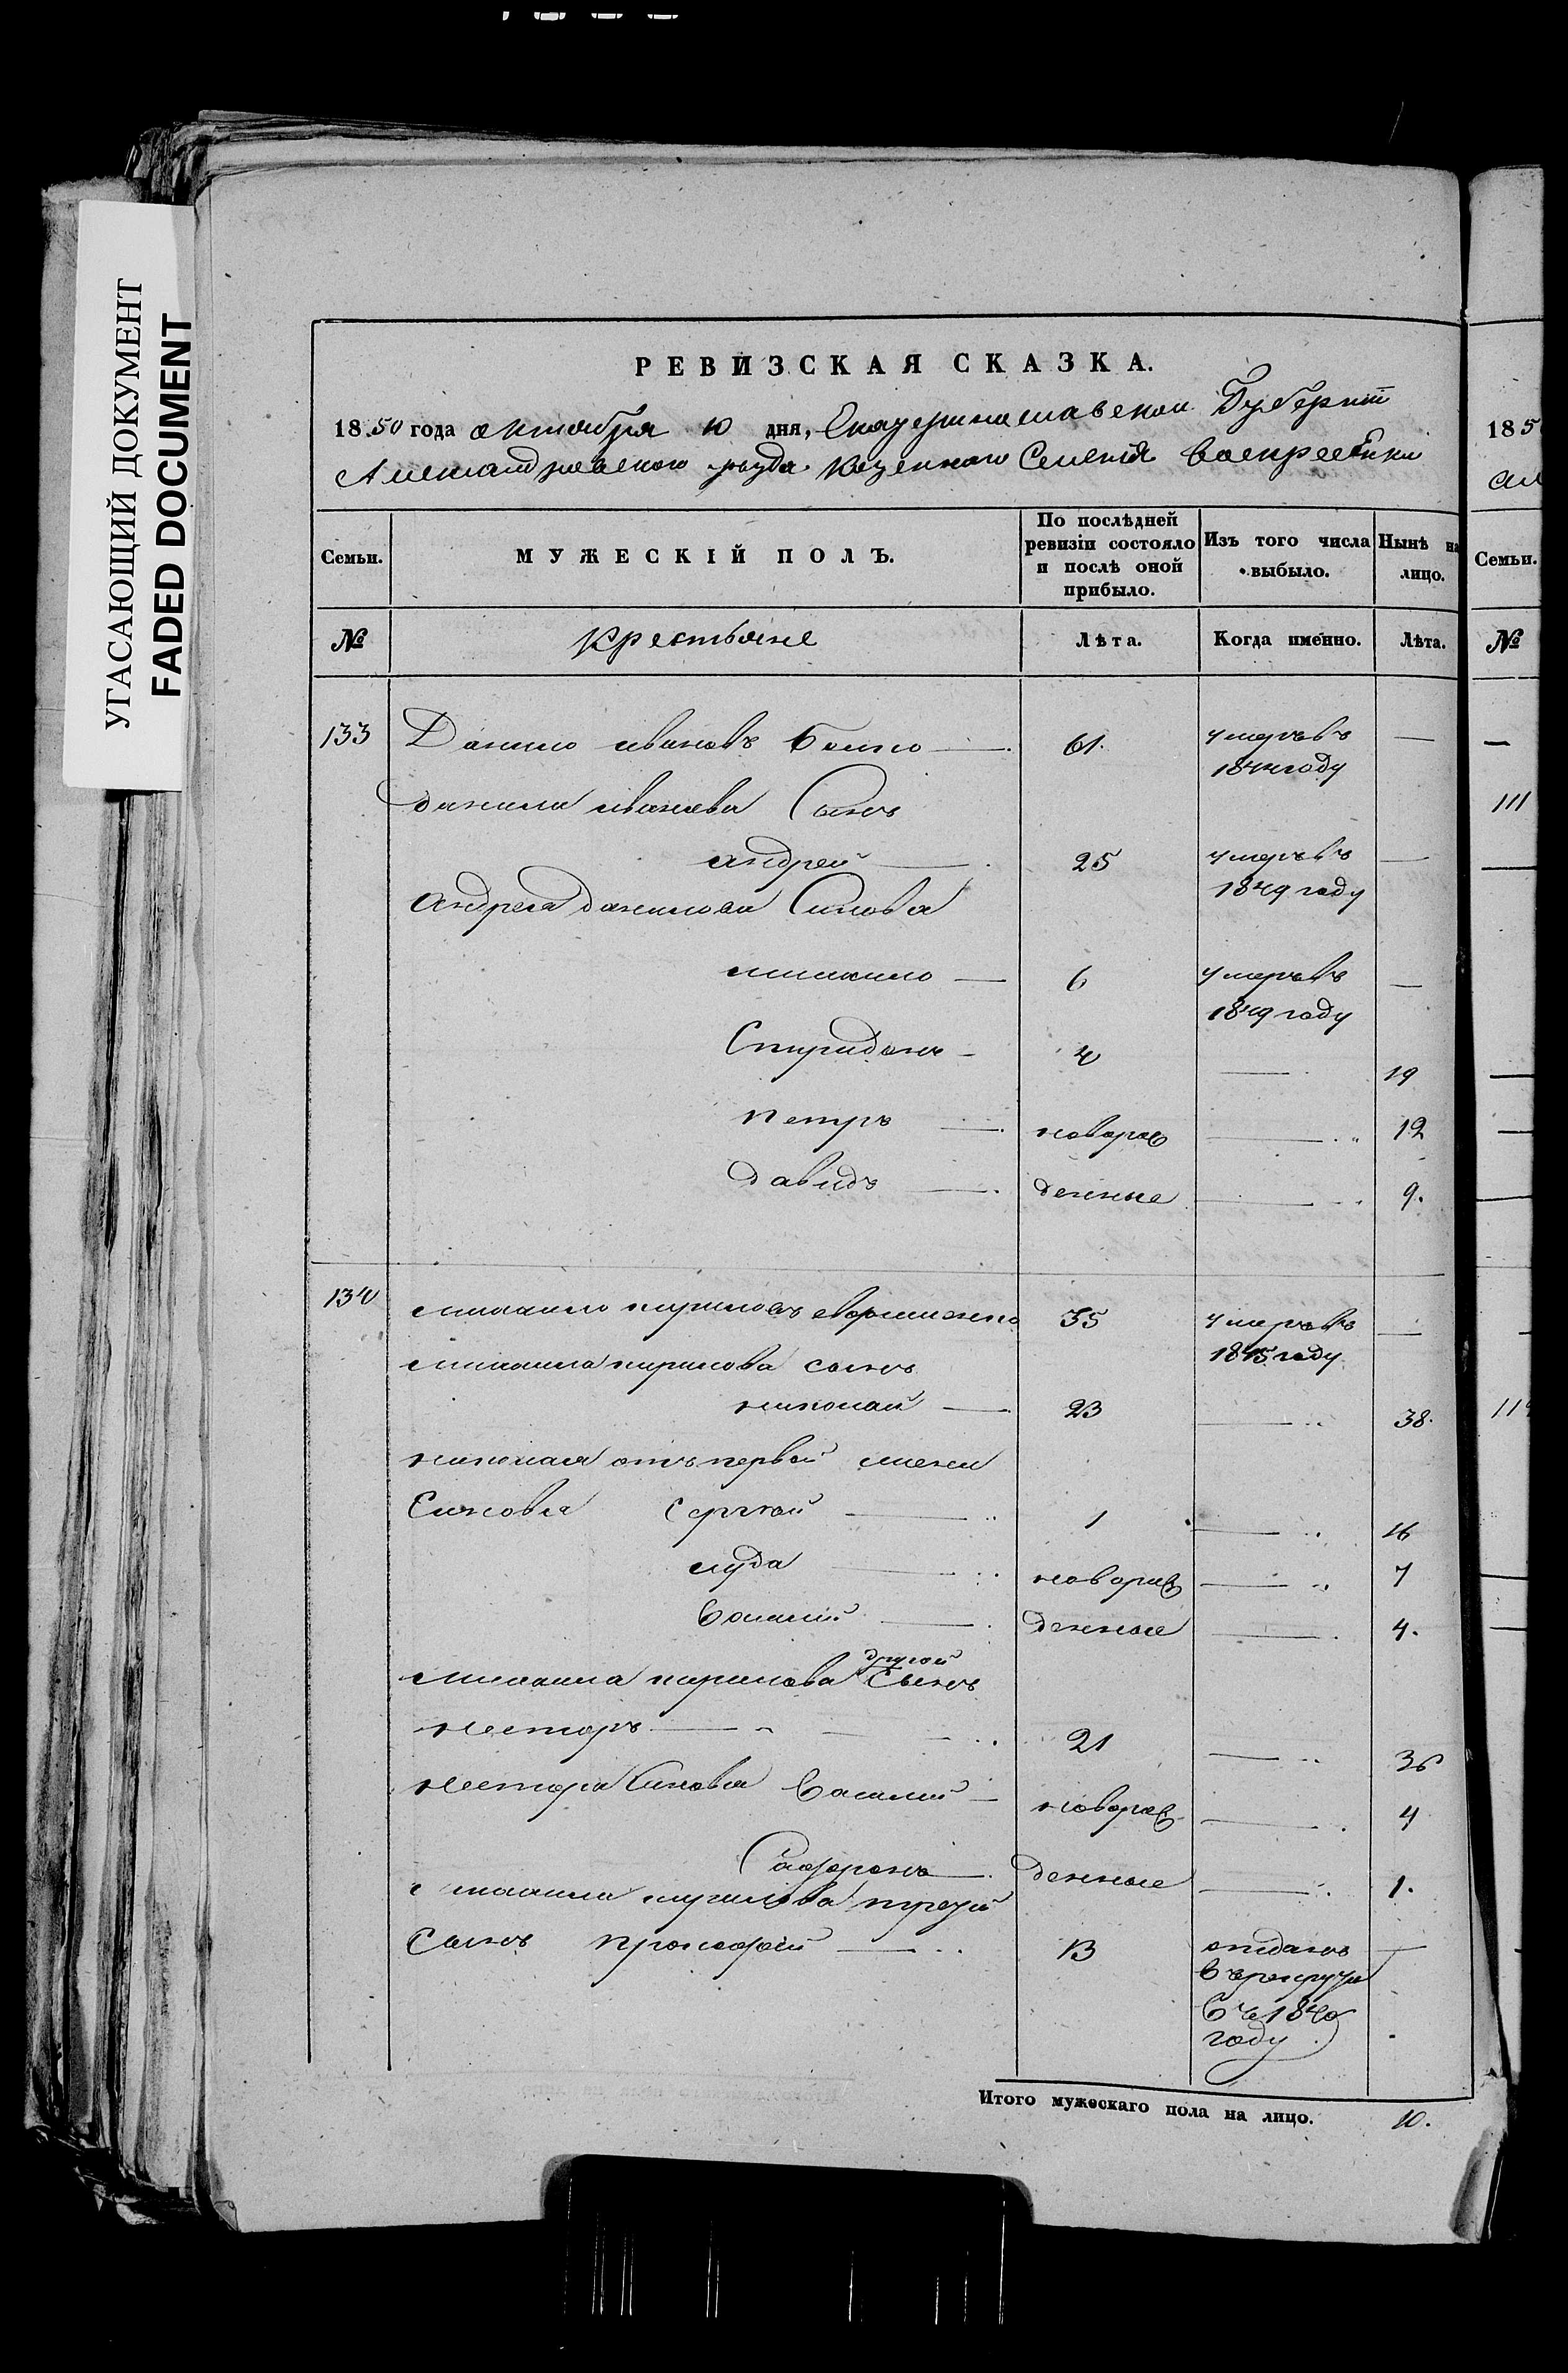 УГАСАЮЩИЙ ДОКУМЕНТ
FADED DOCUMENT
РЕВИЗСКАЯ СКАЗКА.
1850 года октября 10 дня, Екатеринославской Губерніи
Александровскаго уезда казеннаго Селенія Воскресенки
Семьи.
МУЖЕСКІЙ ПОЛЪ.
По послѣдней ревизіи состояло и послѣ оной прибыло.
Изъ того числа выбыло.
Нынѣ на лицо.
№ Крестьяне Лѣта. Когда именно. Лѣта.
133 Данило ивановъ 61. умеръ въ —
1844 году
данила иванова Сынъ
андрей — 25 умеръ въ —
1849 году
Андрея данилова Синовья
михаило — 6 умеръ въ —
1849 году
Спиридонъ — 4 — 19
петръ — новорож — 12
давидъ — денные — 9.
134 михаило кириловъ 55 умеръ въ —
1845 году
михаила кирилова сынъ
николай — 23 — 38.
николая отъ первой жены
Синовья Сергѣй — 1 — 16
иуда — новорож — 7
Василий — денные — 4.
михаила кирилова другой Сынъ
несторъ — 21 — 36
нестора Синовья Василий — новорож — 4
Софронъ — денные — 1.
михаила кирилова третий
Сынъ прокофий — 13 отданъ —
въ рекруты
въ 1840
году
Итого мужескаго пола на лицо. 10.
185
Семьи.
№
111